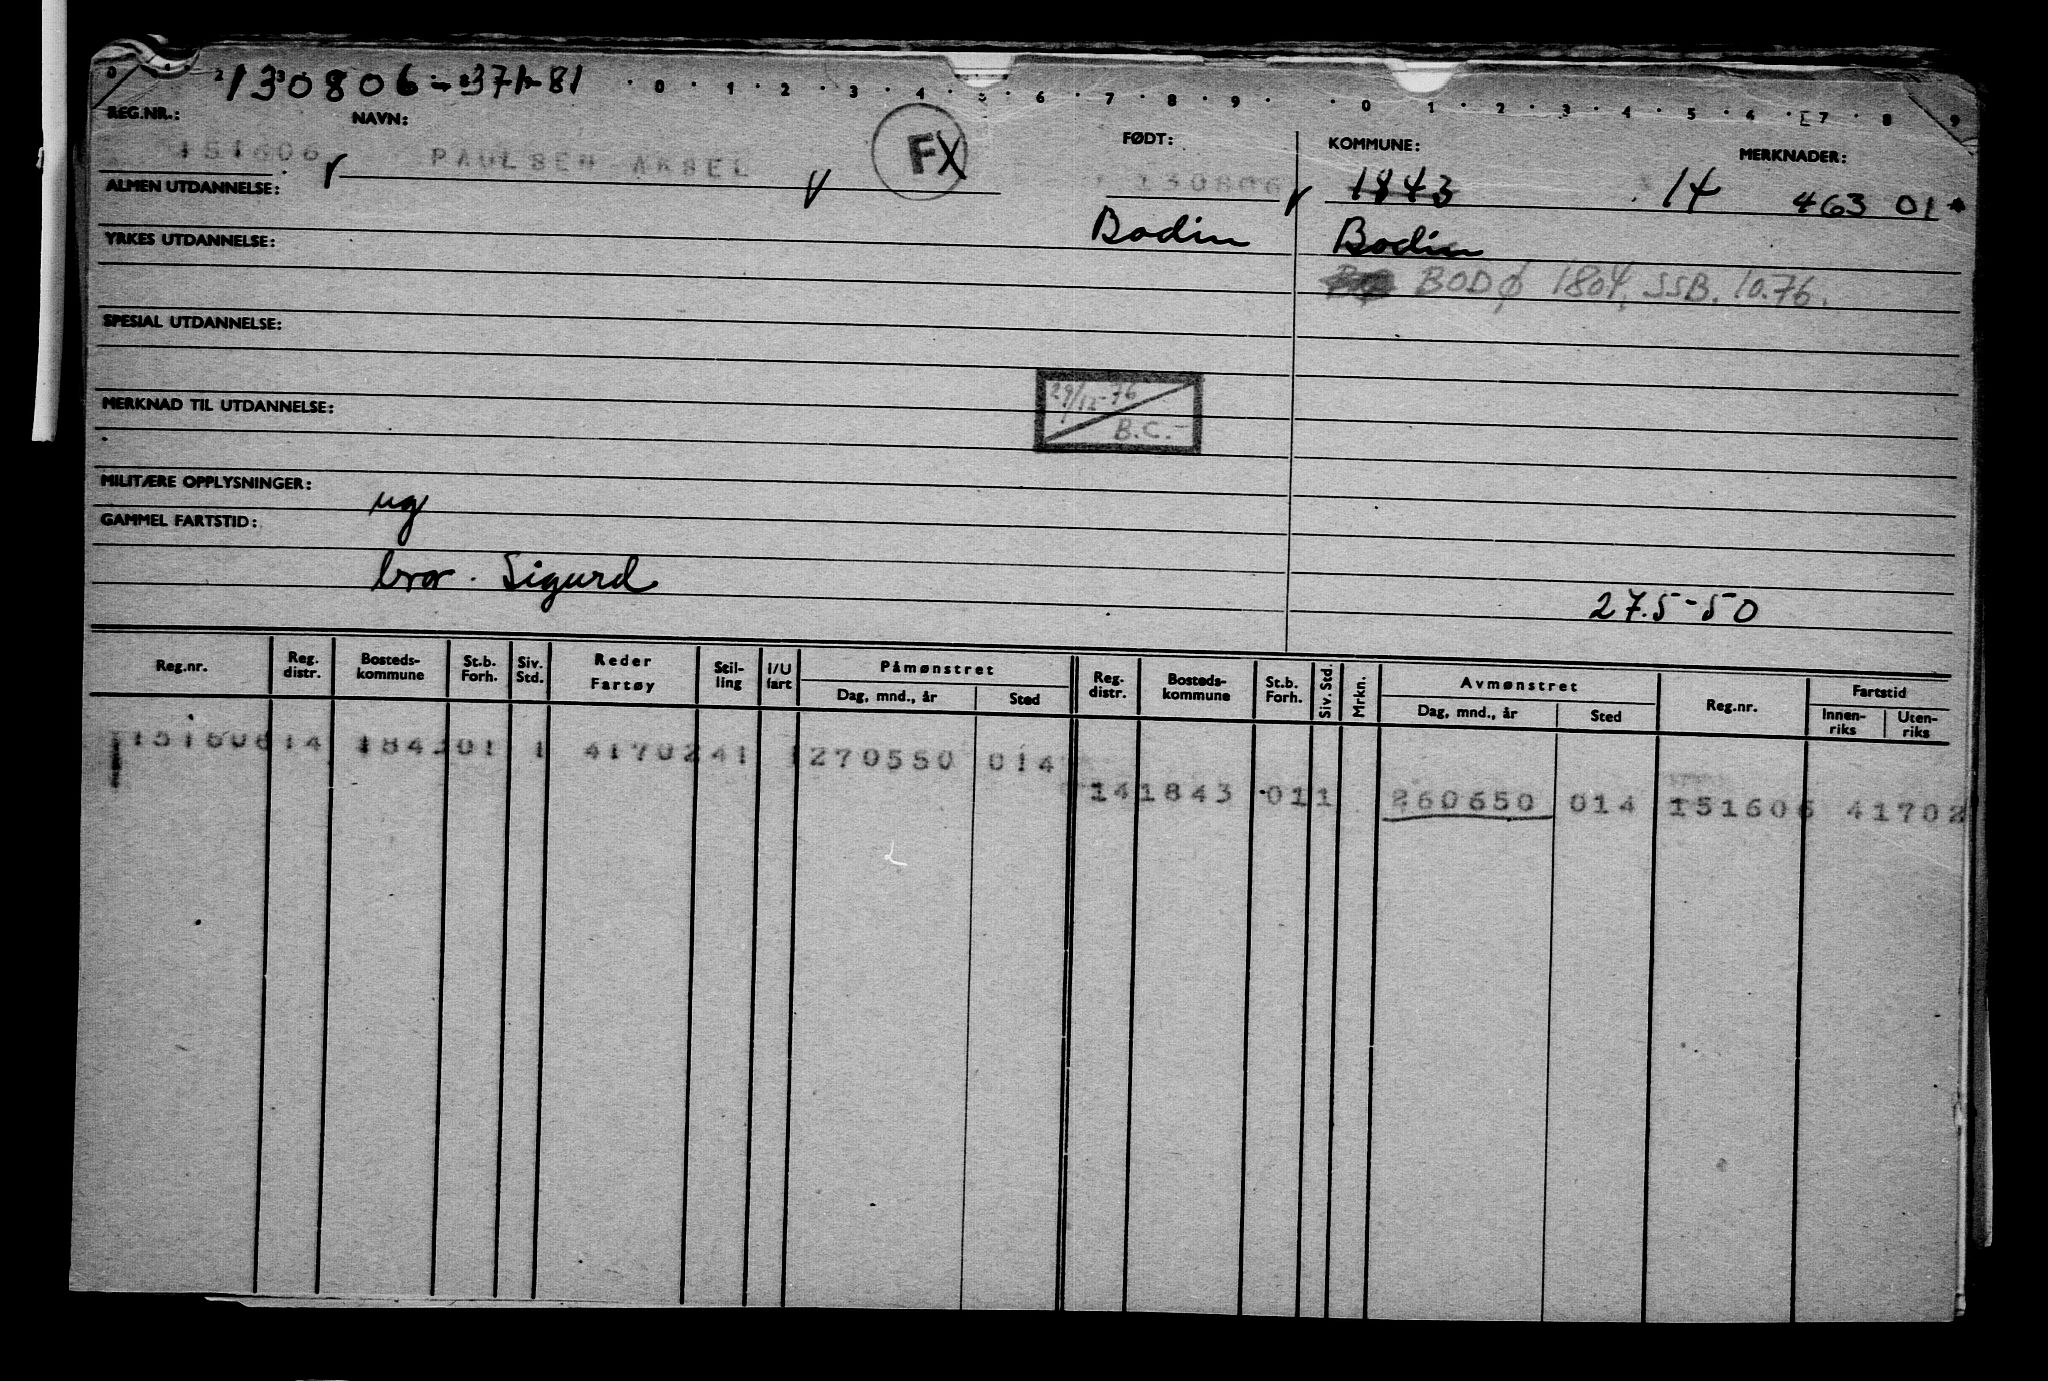 130806-37181
0 1 2 3 4 5 6 7 8 9 0 1 2 3 4 5 6 7 8 9
REG.NR.: NAVN: FØDT: KOMMUNE: MERKNADER:
151606 PAULSEN AKSEL FX 130806 1843 14 463 01
ALMEN UTDANNELSE:
Bodin Bodin
YRKES UTDANNELSE:
BODØ 1804, SSB. 10.76.
SPESIAL UTDANNELSE:
29/12-76
B.C.-
MERKNAD TIL UTDANNELSE:
MILITÆRE OPPLYSNINGER:
ug
GAMMEL FARTSTID:
bror. Sigurd
27.5-50
Reg.nr. Reg. distr. Bosteds-kommune St.b. Forh. Siv. Std. Reder Fartøy Stil-ling I/U fart Påmønstret Dag, mnd., år Sted Reg. distr. Bosteds-kommune St.b. Forh. Siv. Std. Mrkn. Avmønstret Dag, mnd., år Sted Reg.nr. Fartstid Innen-riks Uten-riks
151606 14 1843 01 1 41702 41 1 270550 014
14 1843 01 1 260650 014 151606 41702